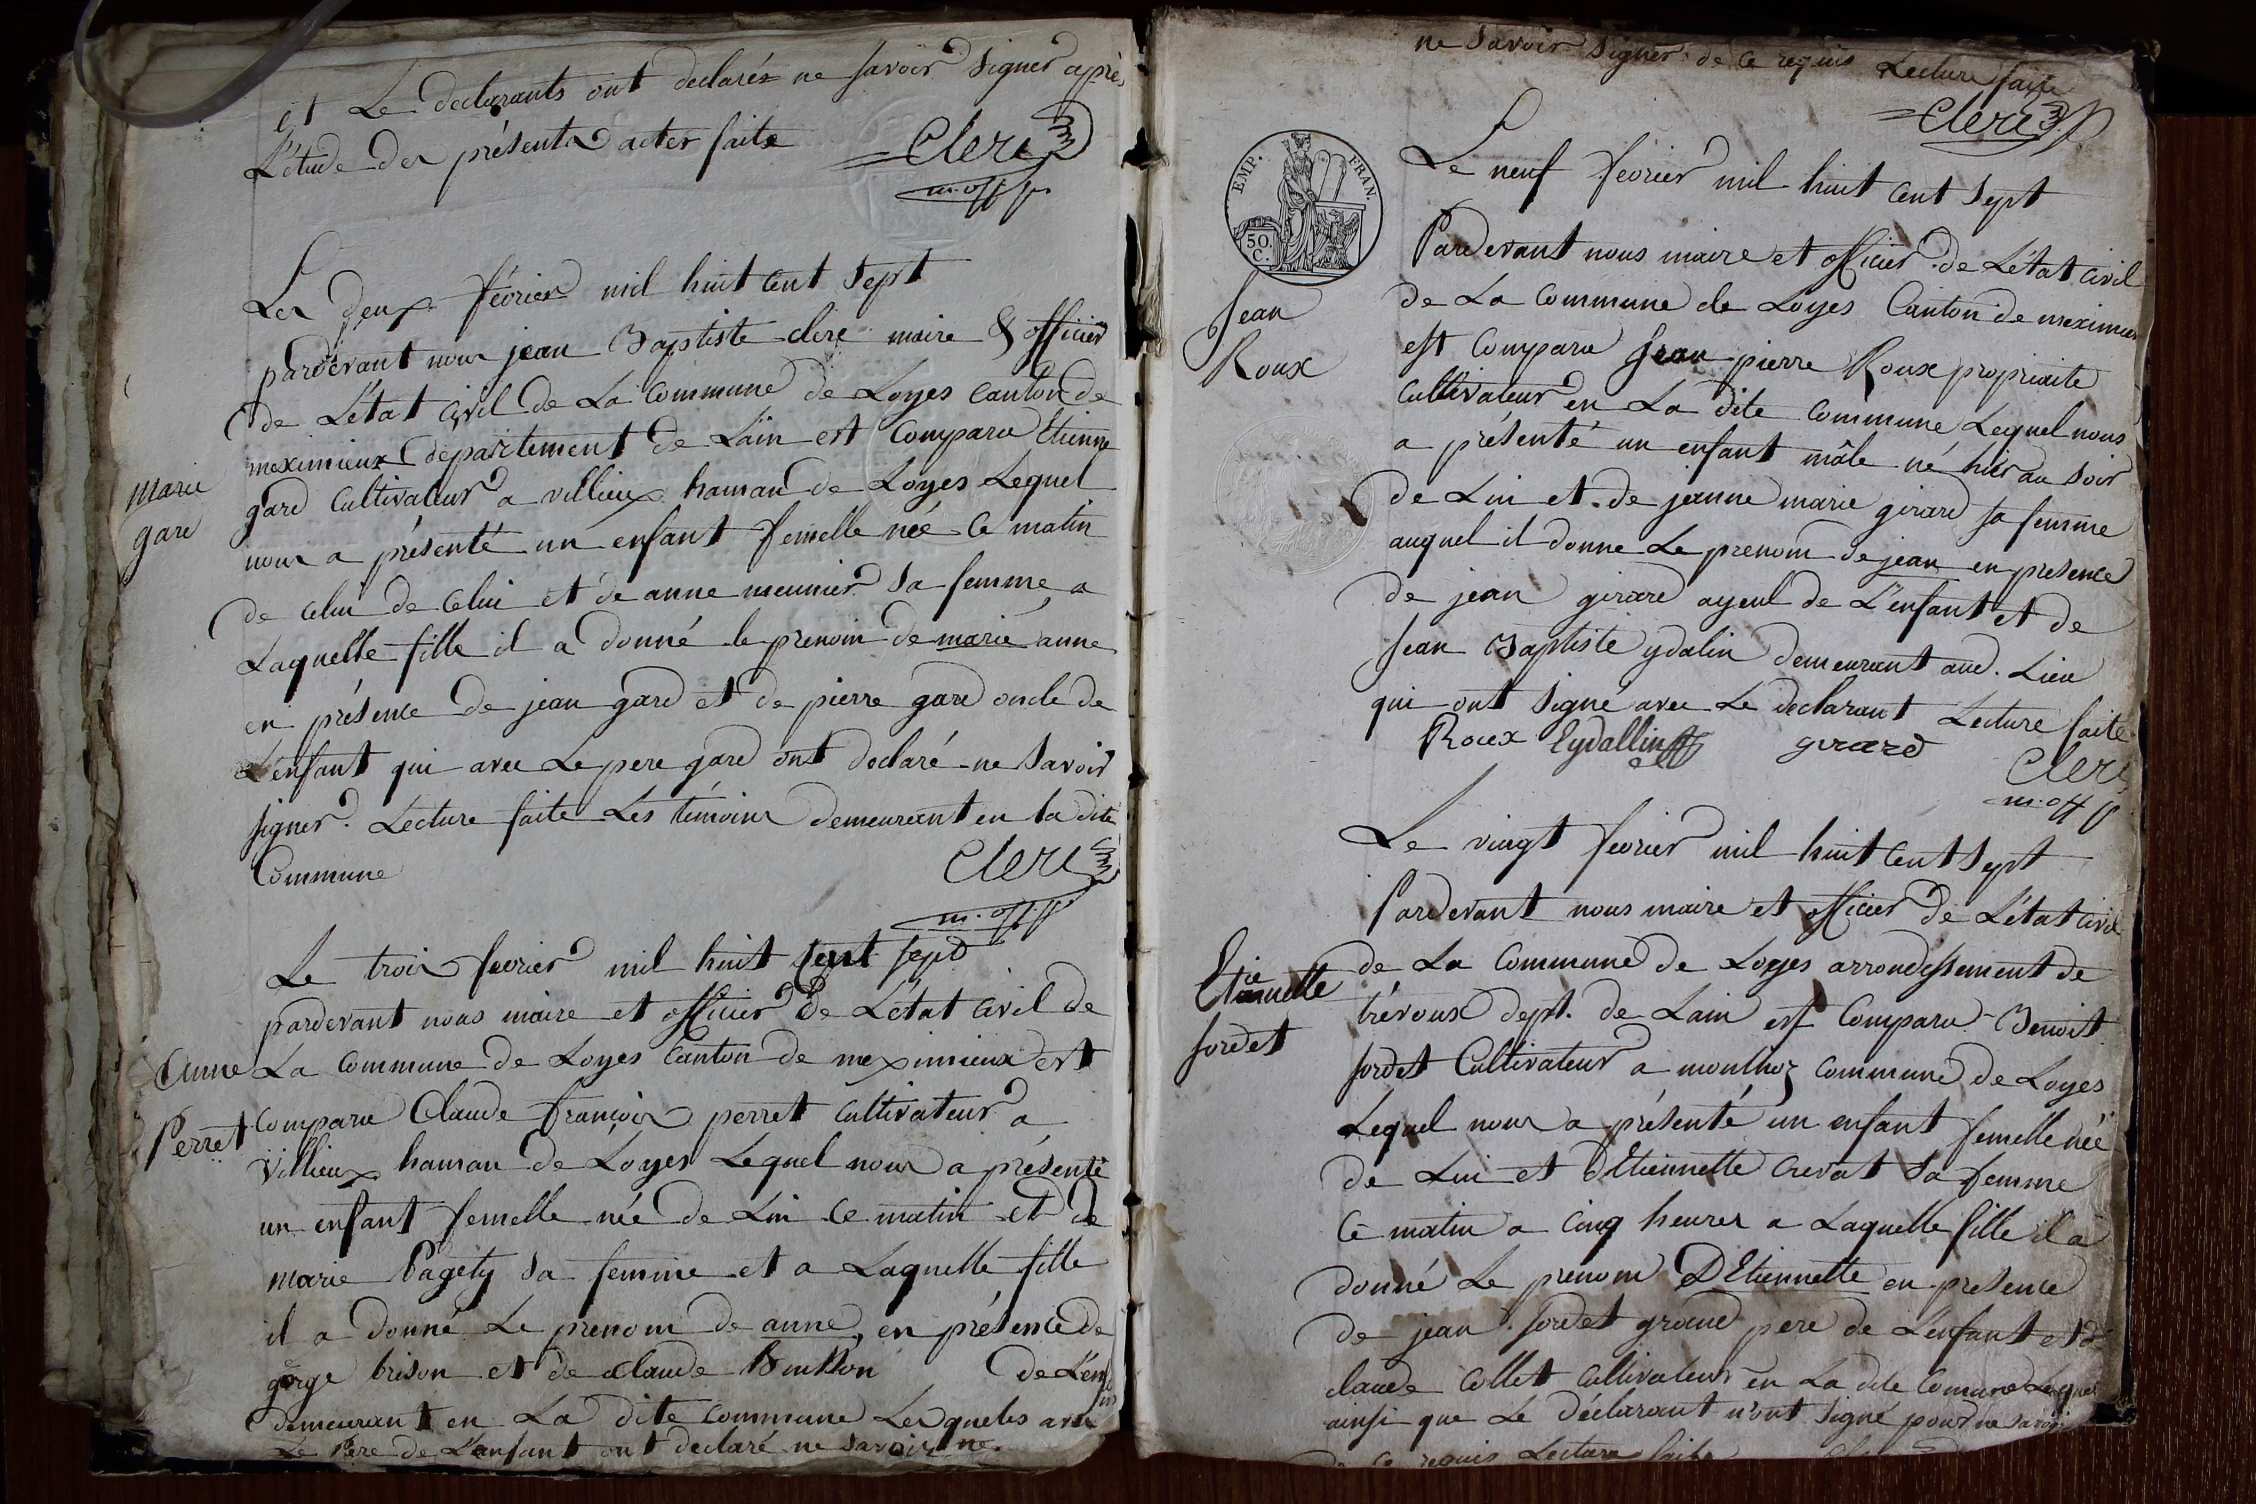 et Le declarants ont declarés ne savoir signer après
L'étude des présents actes faite
Clerc
m. off. p.
Les deux février mil huit cent sept
pardevant nous jean Baptiste clerc maire & officier
de L'état civil de La commune de Loyes canton de
meximieux département de L'ain est comparu Etienne
gard cultivateur a villieux hamau de Loyes Lequel
nous a présenté un enfant femelle née ce matin
de celui de celui et de anne meunier sa femme a
Laquelle fille il a donné le prenom de marie anne
en présence de jean gard et de pierre gard oncle de
L'enfant qui avec Le pere gard ont declaré ne savoir
signer. Lecture faite Les témoins demeurant en la dite
Commune
Clerc
m. off. p.
marie
gard
Le trois fevrier mil huit cent sept
pardevant nous maire et officier de L'état civil de
La commune de Loyes canton de meximieux est
comparu Claude françois perret cultivateur a
villieux hamau de Loyes Lequel nous a présenté
un enfant femelle née de Lui ce matin et de
marie Pagéty sa femme et a Laquelle fille
il a donné Le prenom de anne, en présence de
george brison et de claude Bouillon de L'en
demeurant en La dite commune Lesquels avec
Le Père de L'anfant ont declaré ne savoir ne
Anne
Perret
ne savoir signer de ce requis Lecture faite
Clerc
Le neuf février mil huit cent sept
Pardevant nous maire et officier de L'état civil
de La commune de Loyes Canton de meximieux
est comparu Jean pierre Roux propriaite
cultivateur en La dite commune Lequel nous
a présenté un enfant mâle né hier au soir
de Lui et de jeanne marie girard sa femme
auquel il donne Le prenom de jean en presence
de jean girard ayeul de L'enfant et de
Jean Baptiste ydalin demeurant aud. Lieu
qui ont signé avec Le declarant Lecture faite
Roux Eydallin girard
Clerc
m. off. p.
EMP. FRAN.
50.
C.
Jean
Roux
Le vingt fevrier mil huit cent sept
Pardevant nous maire et officier de L'état civil
de La commune de Loyes arrondissement de
trévoux dept. de Lain est comparu Benoit
sordet Cultivateur a monthoz commune de Loyes
Lequel nous a présenté un enfant femelle née
de Lui et d'Etiennette crevat sa femme
ce matin a cinq heures a Laquelle fille il a
donné Le prenom D'Etiennette en presence
de jean sordet grand pere de L'enfant et de
claude collet cultivateur en La dite Comune
ainsi que Le déclarant n'ont signé pour ne savoir
de ce requis Lecture faite
Etiennette
sordet